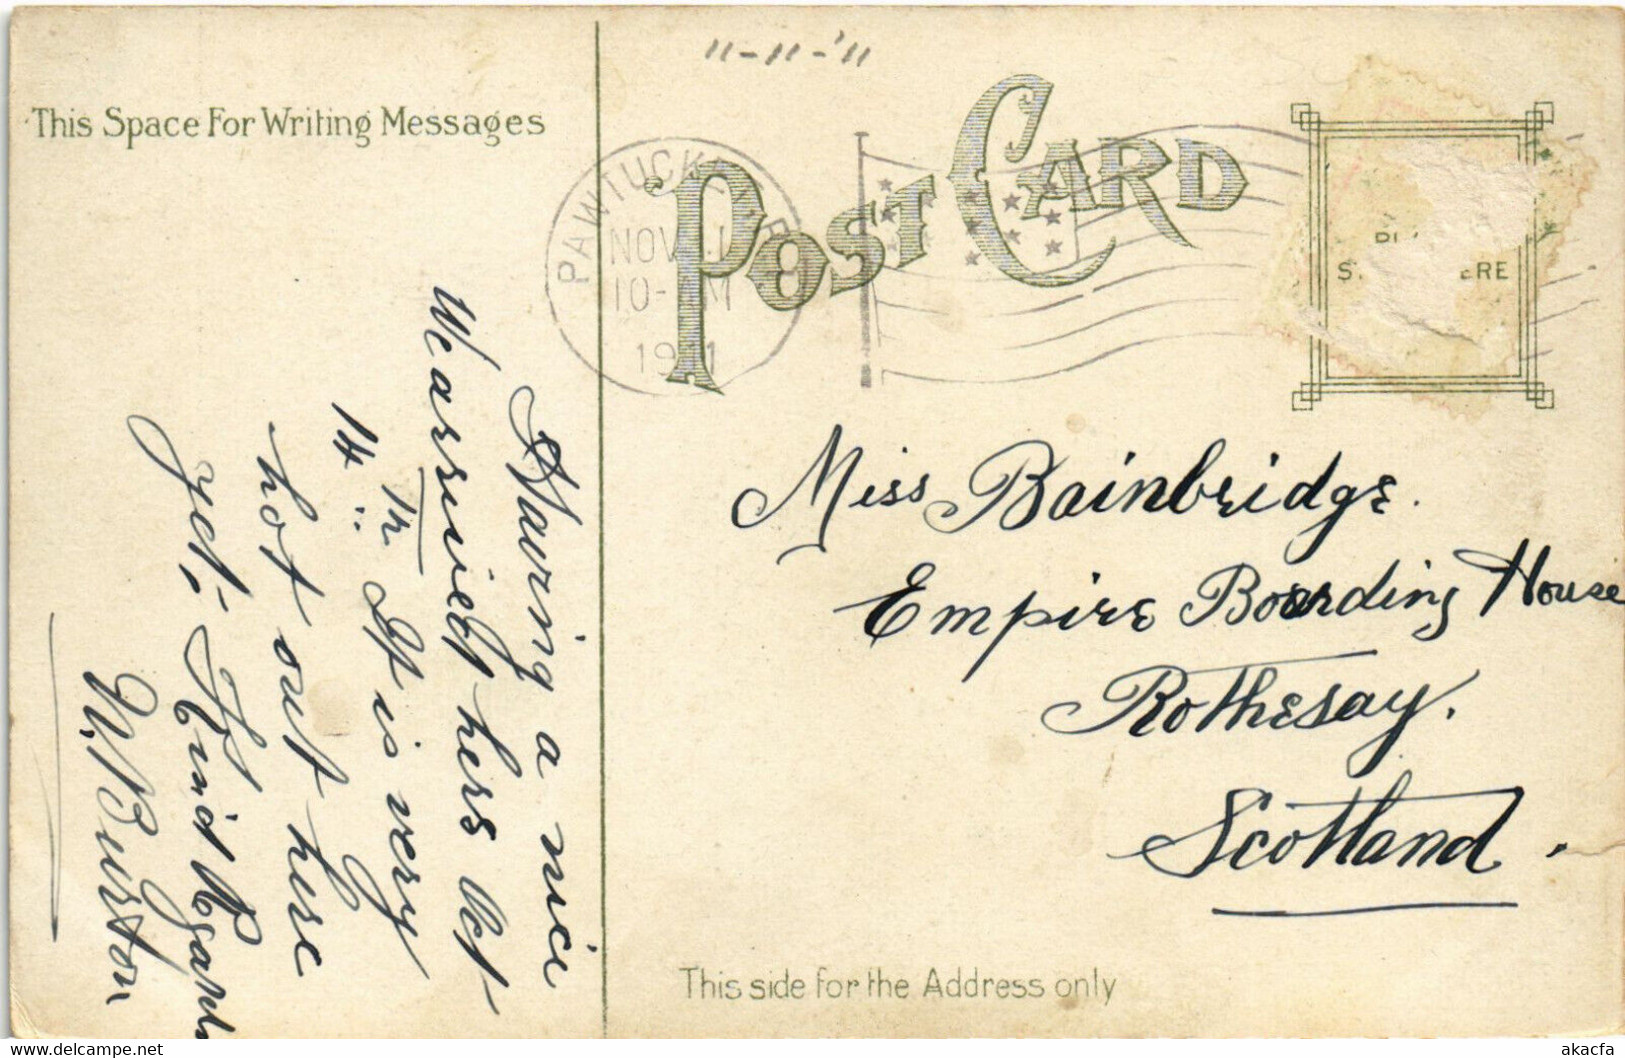 11-11-'11
This Space For Writing Messages
POST CARD
PAWTUCKET, R.
NOV 1
10- M
1911
S ERE
Having a nice
We arrived here Oct
14th. It is very
hot out here
yet; Kind Regards
W. Burton
Miss Bainbridge.
Empire Boarding House
Rothesay.
Scotland.
This side for the Address only
delcampe.net
akacfa